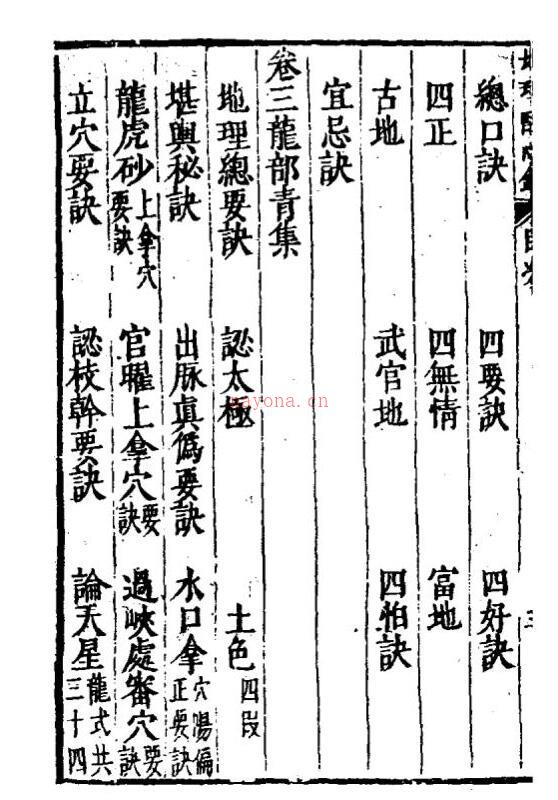 總口訣 四要訣 四好訣
四正 四無情 富地
古地 武官地 四怕訣
宜忌訣
卷三龍部青集
地理總要訣 認太極 土色四段
堪輿秘訣 出脉真僞要訣 水口拿穴陽偏正要訣
龍虎砂上拿穴要訣 官曜上拿穴要訣 過峽處審穴要訣
立穴要訣 認枝幹要訣 論天星龍式共三十四
nayona.cn